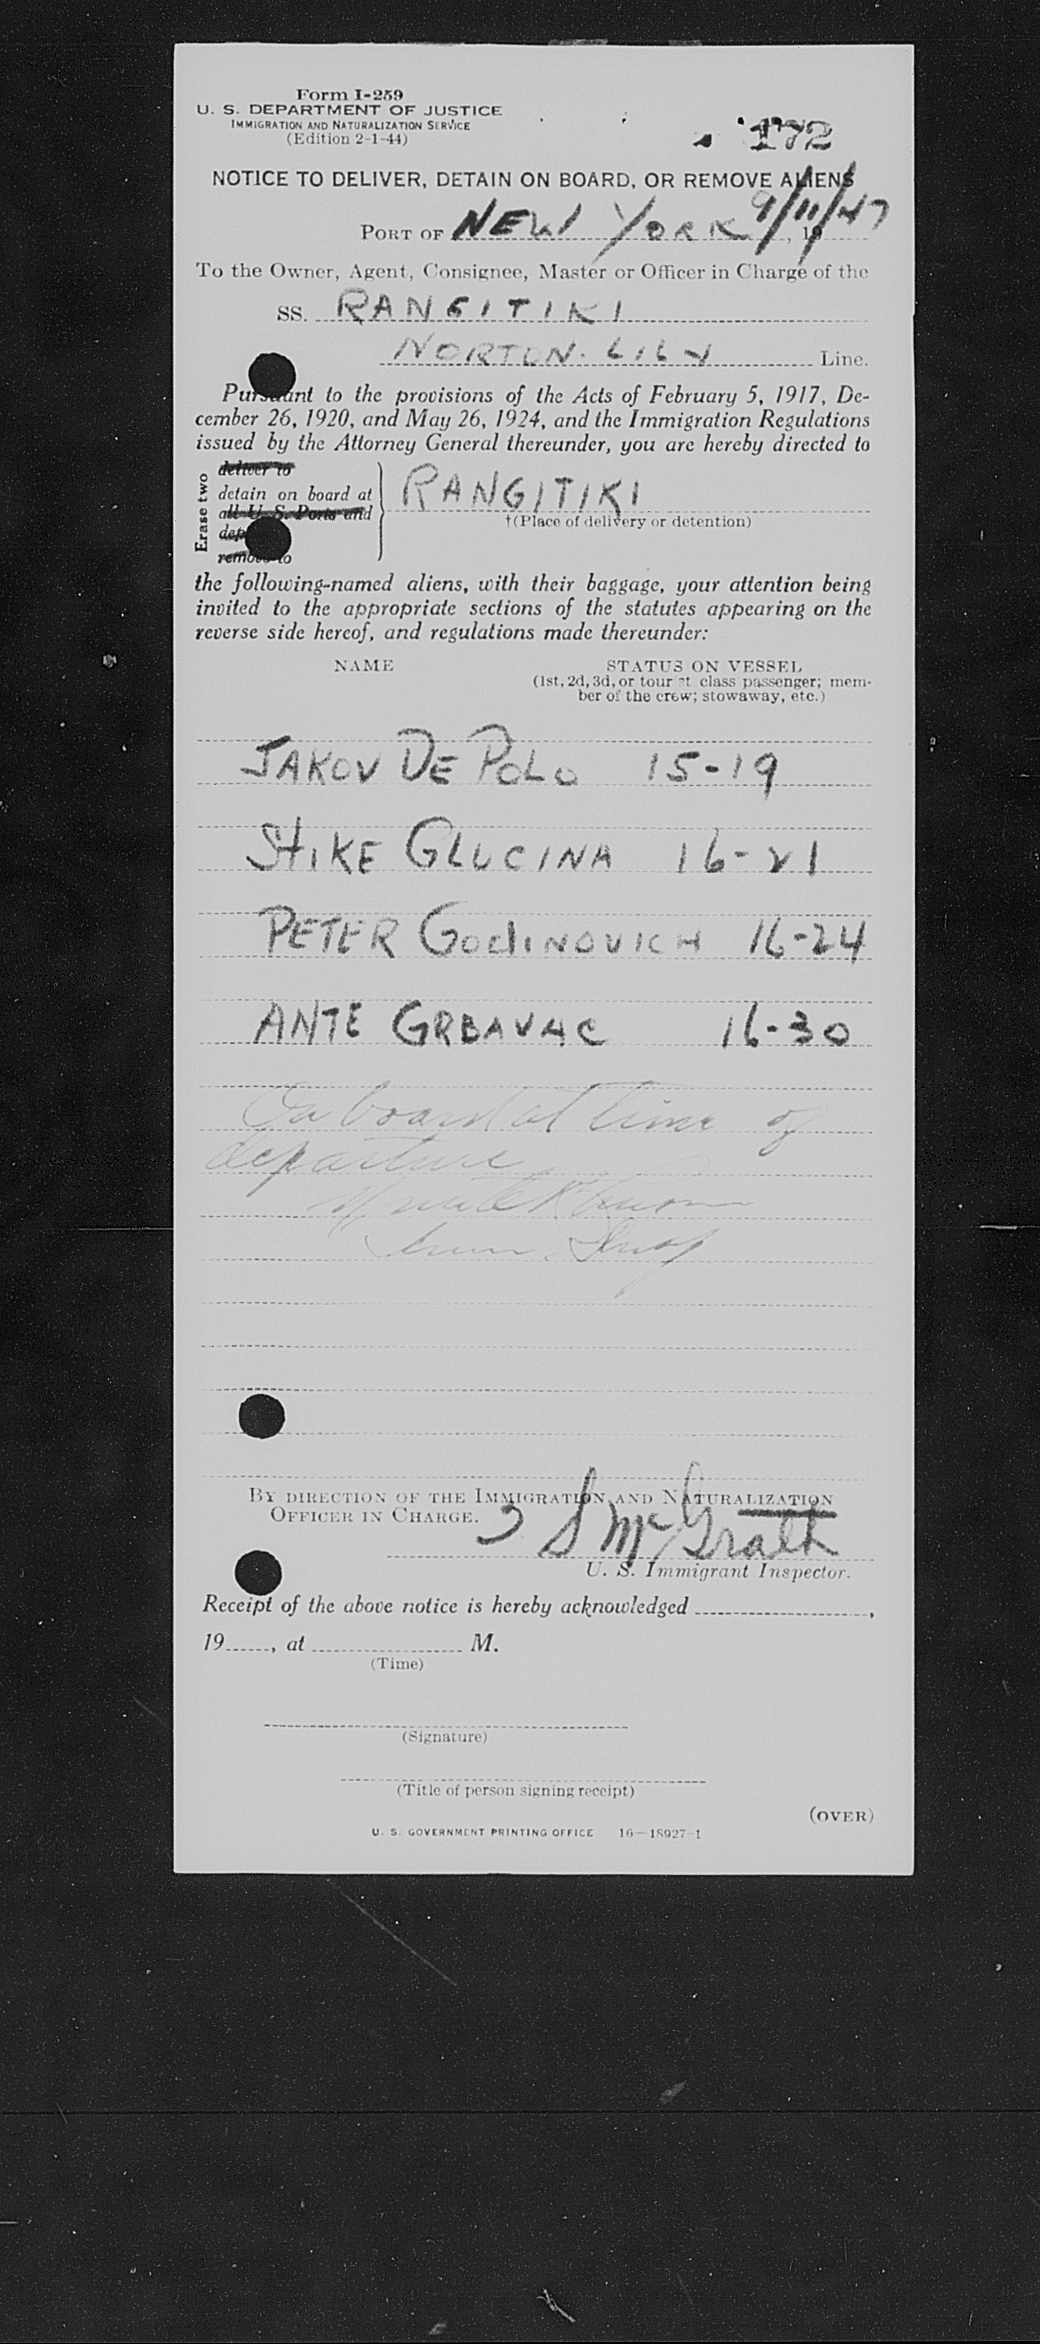 Form I-259
U. S. DEPARTMENT OF JUSTICE
IMMIGRATION AND NATURALIZATION SERVICE
(Edition 2-1-44)
172
NOTICE TO DELIVER, DETAIN ON BOARD, OR REMOVE ALIENS
PORT OF NEW YORK 9/11/47, 19
To the Owner, Agent, Consignee, Master or Officer in Charge of the
SS. RANGITIKI
NORTON. LILY Line.
Pursuant to the provisions of the Acts of February 5, 1917, De-
cember 26, 1920, and May 26, 1924, and the Immigration Regulations
issued by the Attorney General thereunder, you are hereby directed to
Erase two
deliver to
detain on board at
all U. S. Ports and
remove to
RANGITIKI
†(Place of delivery or detention)
the following-named aliens, with their baggage, your attention being
invited to the appropriate sections of the statutes appearing on the
reverse side hereof, and regulations made thereunder:
NAME STATUS ON VESSEL
(1st, 2d, 3d, or tourist class passenger; mem-
ber of the crew; stowaway, etc.)
JAKOV DE POLO 15-19
STIKE GLUCINA 16-21
PETER GODINOVICH 16-24
ANTE GRBAVAC 16-30
On board at time of
departure
BY DIRECTION OF THE IMMIGRATION AND NATURALIZATION
OFFICER IN CHARGE.
S McGrath
U. S. Immigrant Inspector.
Receipt of the above notice is hereby acknowledged ,
19 , at M.
(Time)
(Signature)
(Title of person signing receipt)
(OVER)
U. S. GOVERNMENT PRINTING OFFICE 16—18927-1